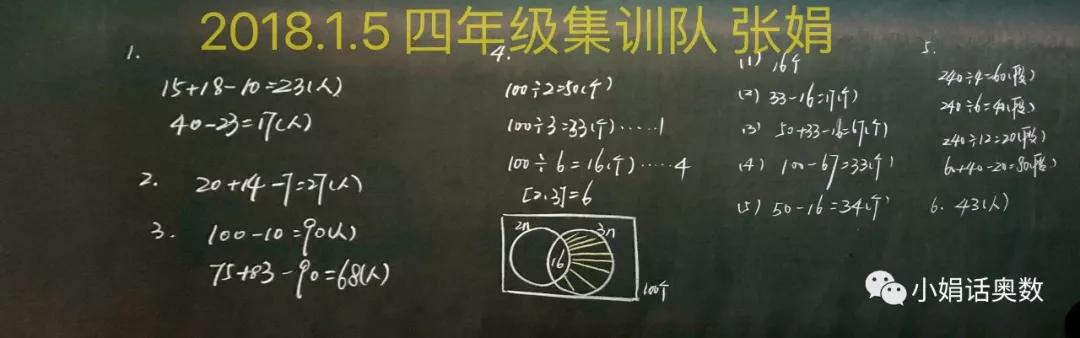 2018.1.5 四年级集训队 张娟
1.
15+18-10=23(人)
40-23=17(人)
2. 20+14-7=27(人)
3. 100-10=90(人)
75+83-90=68(人)
4.
100÷2=50(个)
100÷3=33(个)……1
100÷6=16(个)……4
[2,3]=6
2n 3n
16
100个
(1) 16个
(2) 33-16=17(个)
(3) 50+33-16=67(个)
(4) 100-67=33(个)
(5) 50-16=34(个)
5.
240÷4=60(段)
240÷6=40(段)
240÷12=20(段)
60+40-20=80(段)
6. 43(人)
小娟话奥数